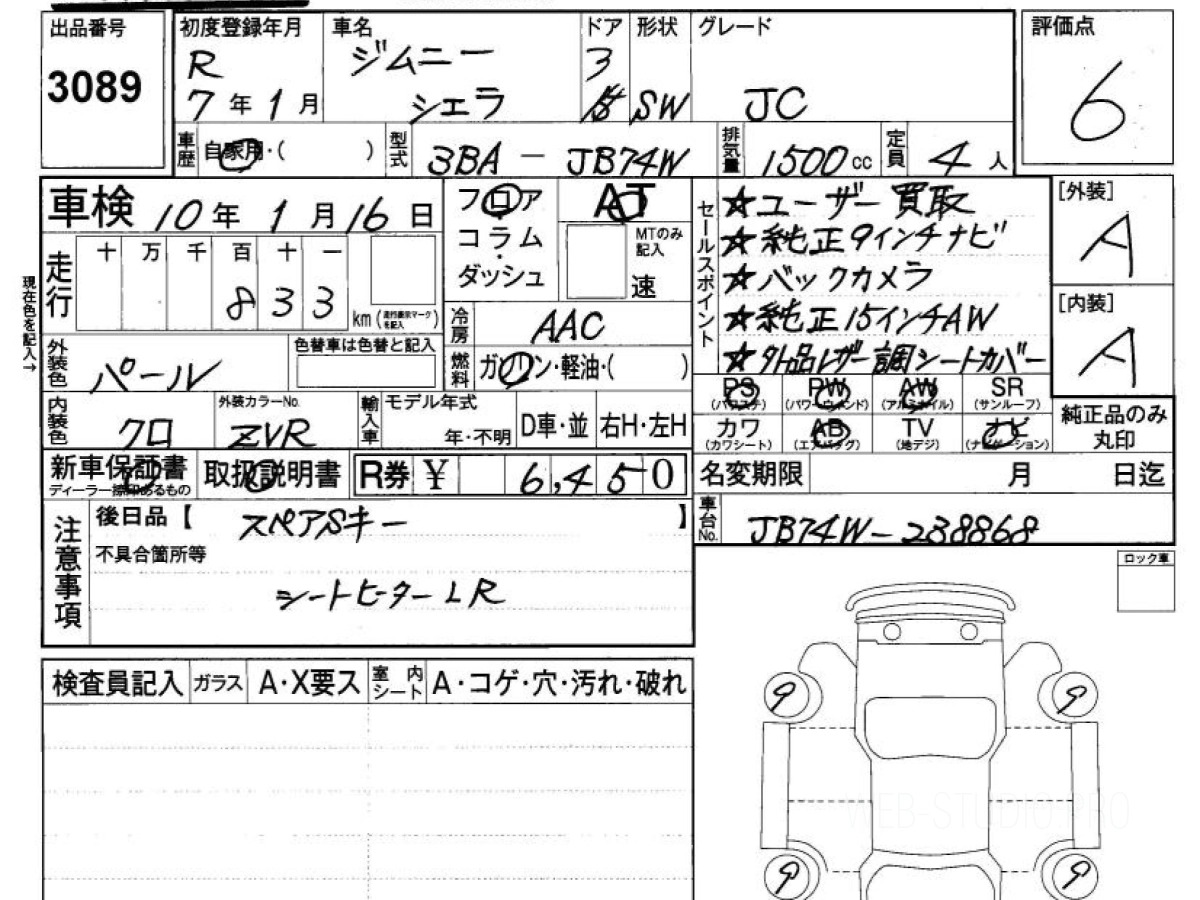 出品番号
3089
初度登録年月
R
7年1月
車名
ジムニー
シエラ
ドア
3
形状
SW
グレード
JC
評価点
6
車歴
自家用・( )
型式
3BA-JB74W
排気量
1500cc
定員
4人
車検 10年1月16日
走行
十 万 千 百 十 一
833
km(走行表示マークを記入)
現在色を記入→
外装色
パール
色替車は色替と記入
内装色
クロ
外装カラーNo.
ZVR
輸入車
モデル年式
年・不明
D車・並
右H・左H
フロア
コラム
・
ダッシュ
AT
MTのみ記入
速
冷房
AAC
燃料
ガソリン・軽油・( )
セールスポイント
☆ユーザー買取
☆純正9インチナビ
☆バックカメラ
☆純正15インチAW
☆外品レザー調シートカバー
[外装]
A
[内装]
A
PS
(パワステ)
PW
(パワーウィンド)
AW
(アルミホイル)
SR
(サンルーフ)
カワ
(カワシート)
AB
(エアバッグ)
TV
(地デジ)
ナビ
(ナビゲーション)
純正品のみ
丸印
新車保証書
ディーラー捺印あるもの
取扱説明書
R券 ¥ 6,450
名変期限 月 日迄
車台No.
JB74W-238868
注意事項
後日品【 スペアSキー 】
不具合箇所等
シートヒーターLR
ロック車
検査員記入
ガラス
A・X要ス
室内シート
A・コゲ・穴・汚れ・破れ
9
9
9
9
WEB-STUDIO.PRO